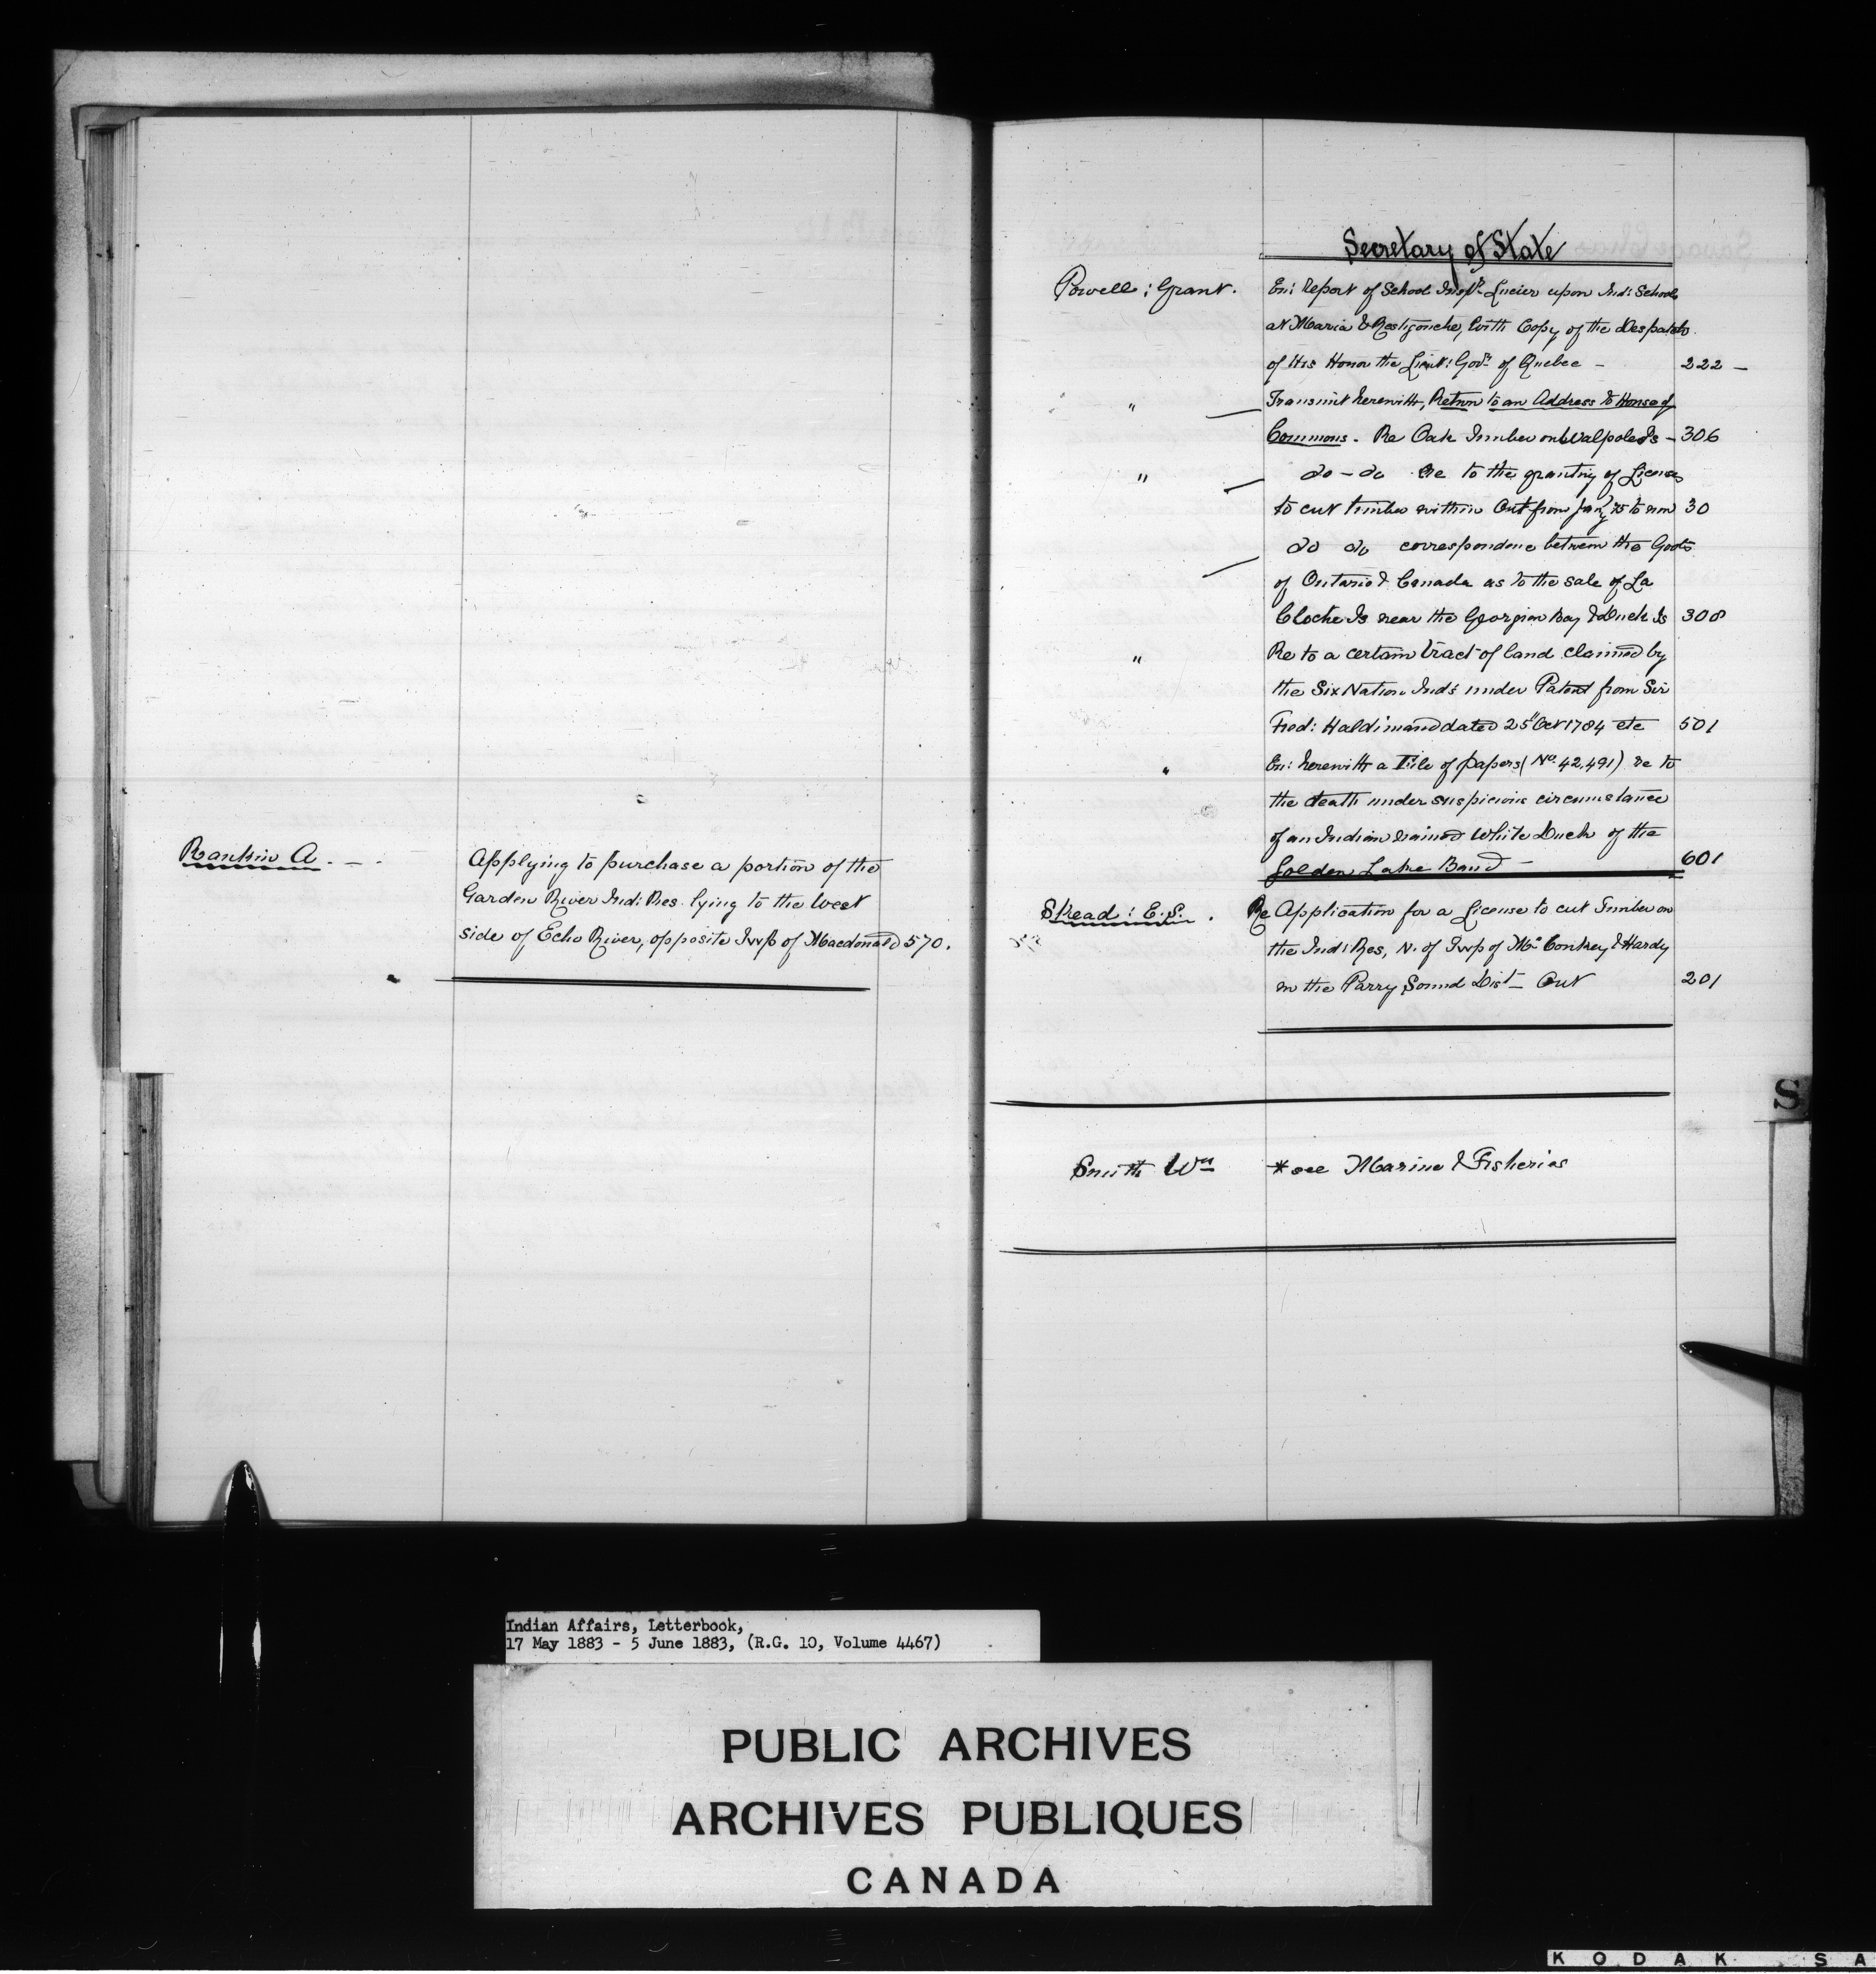 Rankin A. - .
Applying to purchase a portion of the
Garden River Ind: Res. lying to the west
side of Echo River, opposite Twp of Macdonald 570.
Secretary of State
Powell: Grant.
En: Report of School Inspr Lucier upon Ind: Schools
at Maria & Restigouche, with Copy of the Despatch
of His Honor the Lieut: Govr of Quebec - 222 -
" Transmit herewith, Return to an Address to House of
Commons. Re Oak Timber on Walpole Is - 306
" do - do Re to the granting of Licenses
to cut timber within Ont from Jany 75 to now 30
do do correspondence between the Govts
of Ontario & Canada as to the sale of La
Cloche Is near the Georgian Bay & Duck Is 308
" Re to a certain tract of land claimed by
the Six Nation Inds under Patent from Sir
Fred: Haldimand dated 25" Oct 1784 etc 501
" En: herewith a File of papers (No. 42,491) re to
the death under suspicious circumstance
of an Indian named White Duck of the
Golden Lake Band - 601
Skead: E.S. .
Re Application for a License to cut Timber on
the Ind: Res, N. of Twp of Mc Conkey & Hardy
in the Parry Sound Dist - Ont 201
S
Smith Wm *see Marine & Fisheries
Indian Affairs, Letterbook,
17 May 1883 - 5 June 1883, (R.G. 10, Volume 4467)
PUBLIC ARCHIVES
ARCHIVES PUBLIQUES
CANADA
KODAK SA